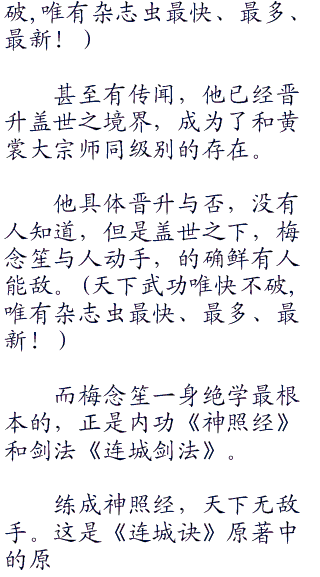 破,唯有杂志虫最快、最多、
最新！ )
甚至有传闻，他已经晋
升盖世之境界，成为了和黄
裳大宗师同级别的存在。
他具体晋升与否，没有
人知道，但是盖世之下，梅
念笙与人动手，的确鲜有人
能敌。 (天下武功唯快不破,
唯有杂志虫最快、最多、最
新！ )
而梅念笙一身绝学最根
本的，正是内功《神照经》
和剑法《连城剑法》。
练成神照经，天下无敌
手。这是《连城诀》原著中
的原